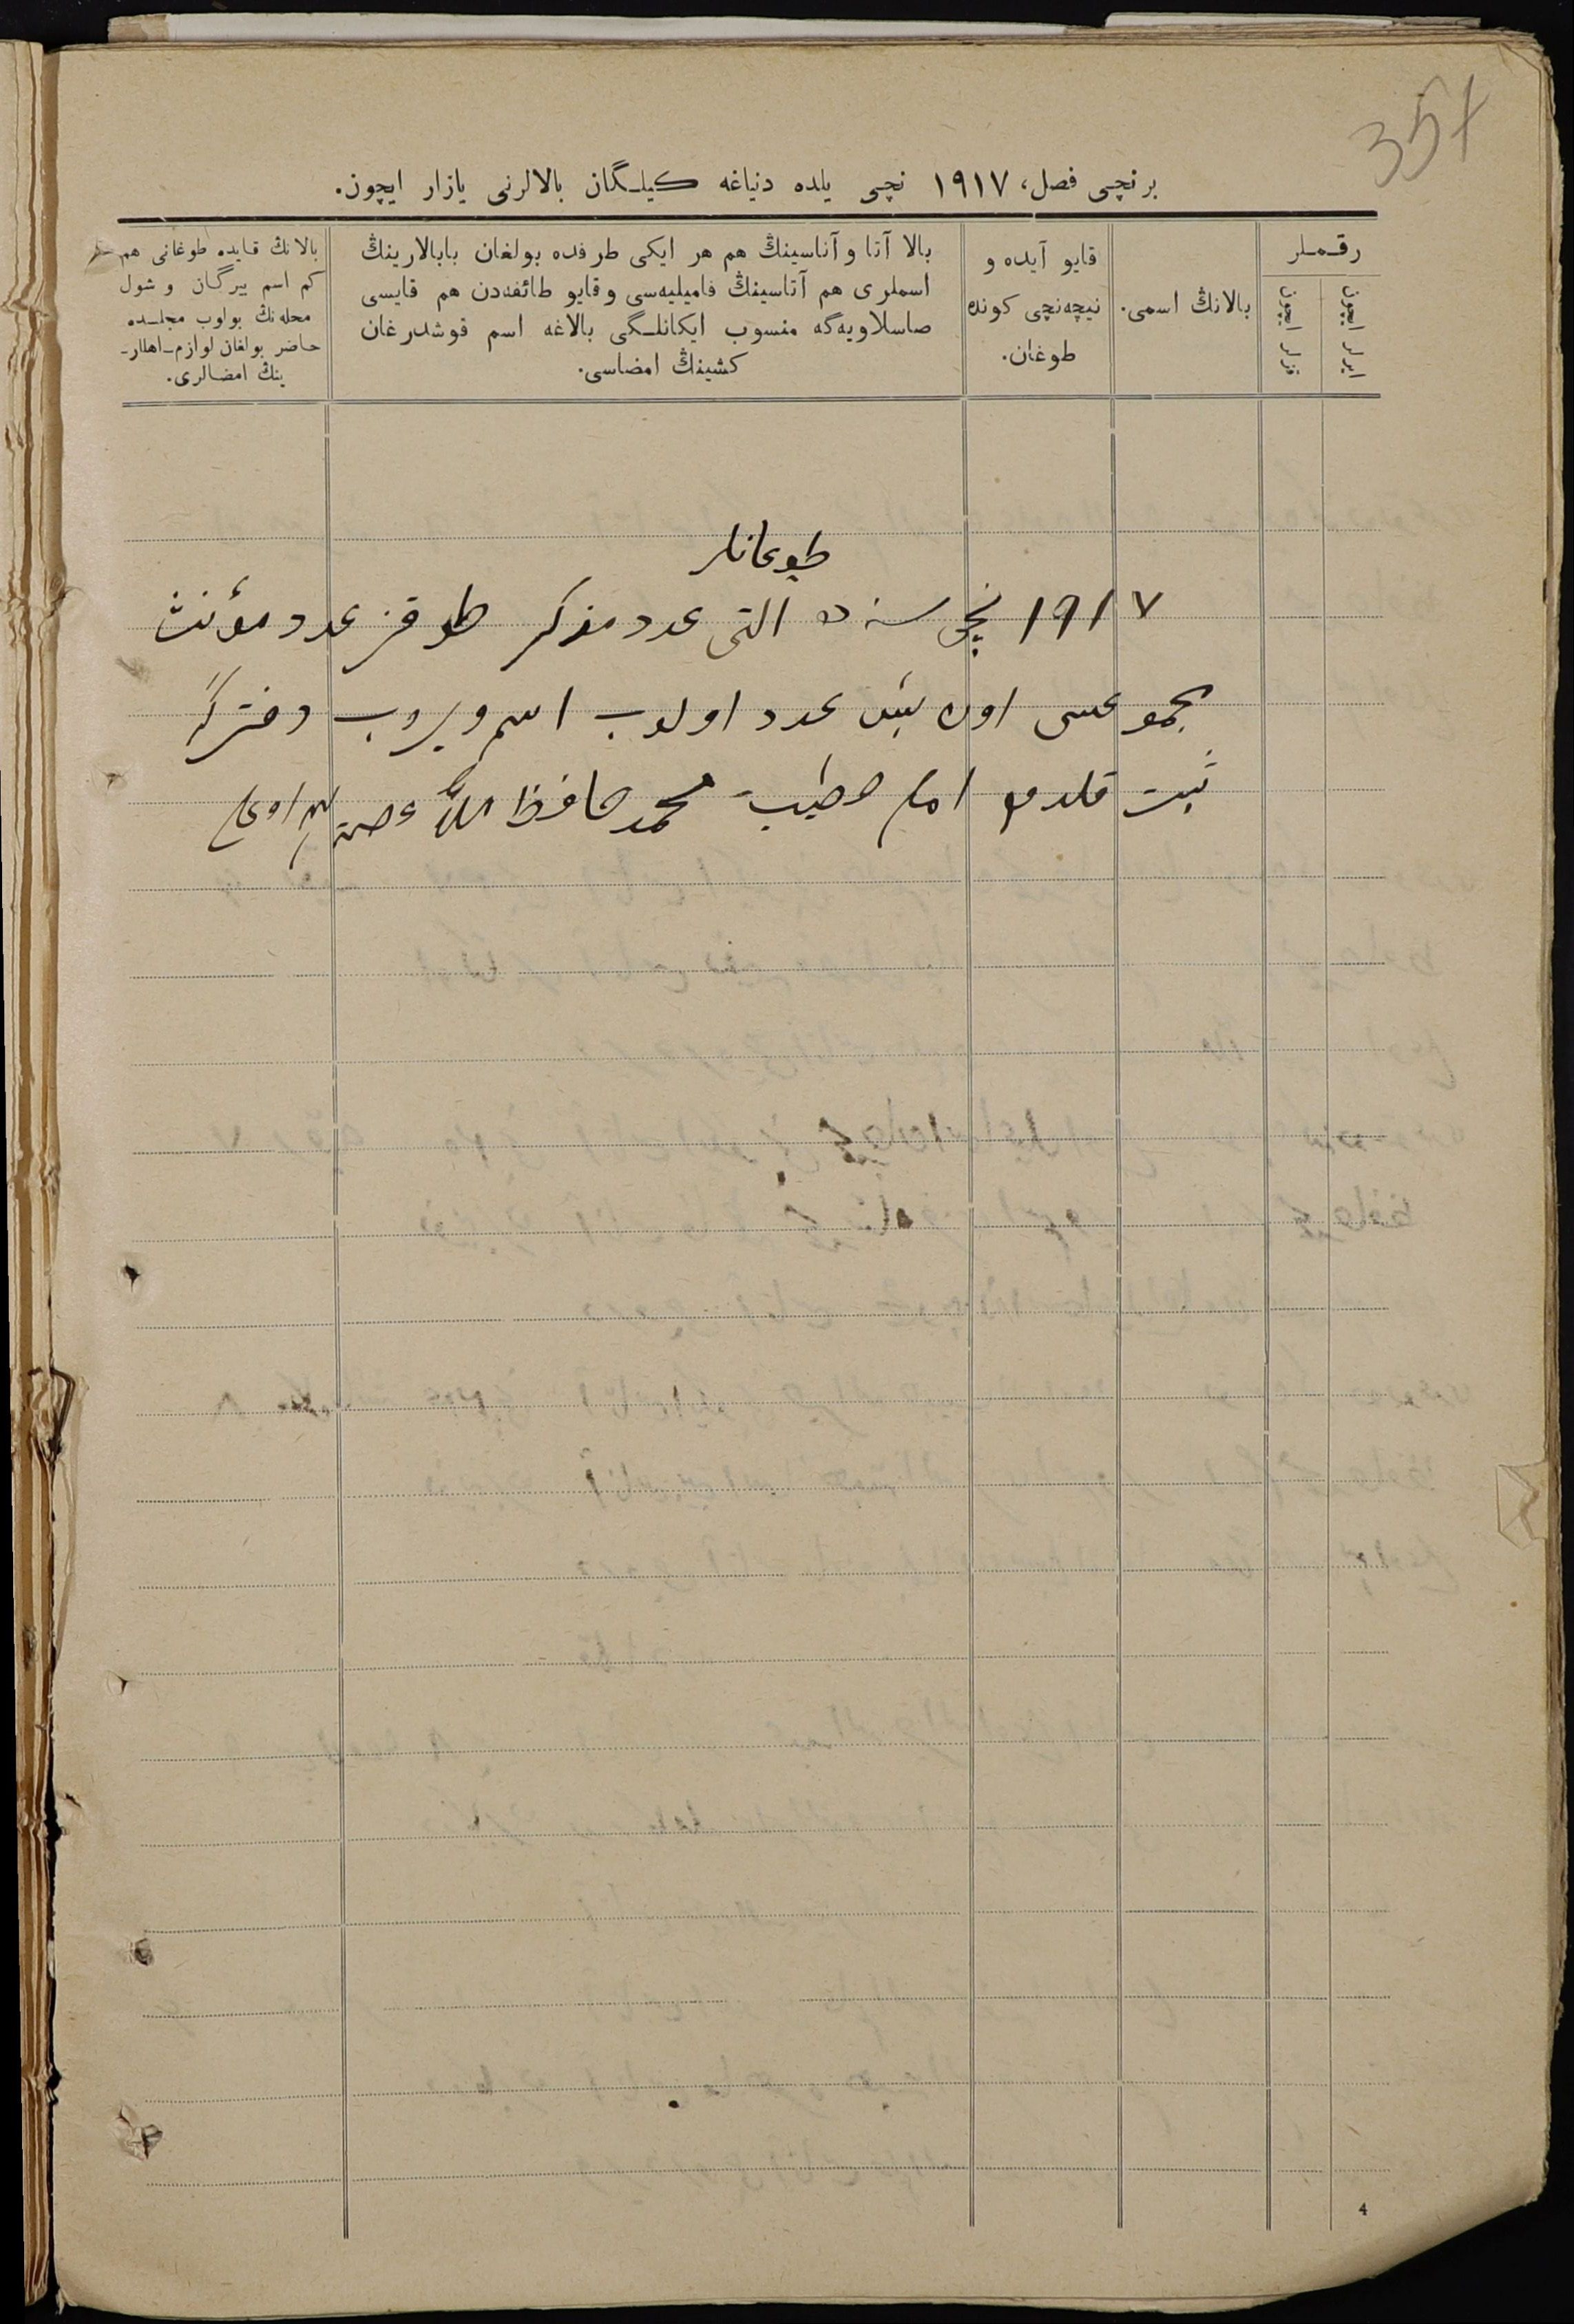 357
برنچی فصل، ١٩١٧ نچی یلده دنیاغه كیلـگان بالالرنی یازار ایچون.
رقـمـلر
ایرلر ایچون
قزلر ایچون
بالانڭ اسمی.
قایو آیده و
نیچه‌نچی كونده
طوغان.
بالا آتا و آناسینڭ هم هر ایكی طرفده بولغان بابالارینڭ
اسملری هم آتاسینڭ فامیلیه‌سی و قایو طائفه‌دن هم قایسی
صاسلاویه‌گه منسوب ایكانلـگی بالاغه اسم قوشدرغان
كشینڭ امضاسی.
بالانڭ قایده طوغانی هم
كم اسم بیرگان و شول
محله‌نڭ بولوب مجلـسده
حاضر بولغان لوازم_اهللر_
ینڭ امضالری.
طوغانلر
١٩١٧ نچی سنه ده التی عدد مذكر طوقز عدد مؤنث
مجموعسی اون بیش عدد اولوب اسم ویروب دفترگه
ثبت قلدم امام خطیب محمد حافظ الله
4